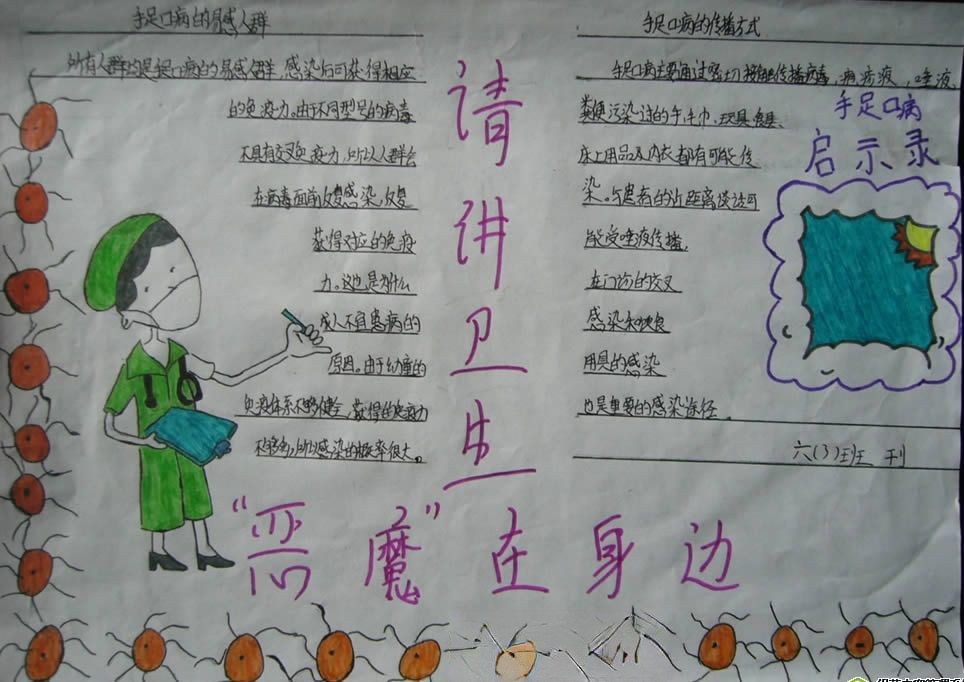 手足口病的易感人群
所有人群均是手足口病的易感人群,感染后可获得相应
的免疫力。由于不同型号的病毒
不具有交叉免疫力,所以人群会
在病毒面前反复感染,反复
获得对应的免疫
力。这也是为什么
成人不宜患病的
原因。由于幼童的
免疫体系不够健全,获得的免疫力
不够多,所以感染的概率很大。
请讲卫生
手足口病的传播方式
手足口病主要通过密切接触传播病毒,病疹液,唾液,
类便污染过的手,毛巾,玩具,食具、
床上用品及内衣都有可能传
染。与患者的近距离谈话可
能受唾液传播,
在门诊的交叉
感染和
用具的感染
也是重要的感染途径。
手足口病
启示录
六(3)班 刊
“恶魔”在身边